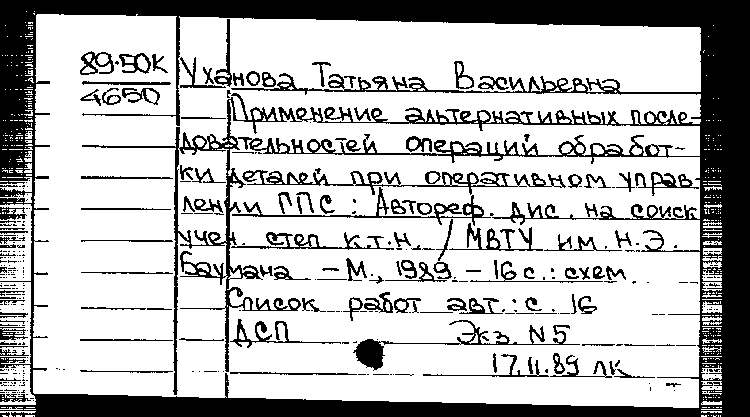 89-50К
4650
Уханова, Татьяна Васильевна
Применение альтернативных после-
довательностей операций обработ-
ки деталей при оперативном управ-
лении ГПС : Автореф. дис. на соиск
учен. степ к.т.н. / МВТУ им. Н.Э.
Баумана – М., 1989. – 16 с. : схем.
Список работ авт.: с. 16
ДСП Экз. N5
17.11.89 лк